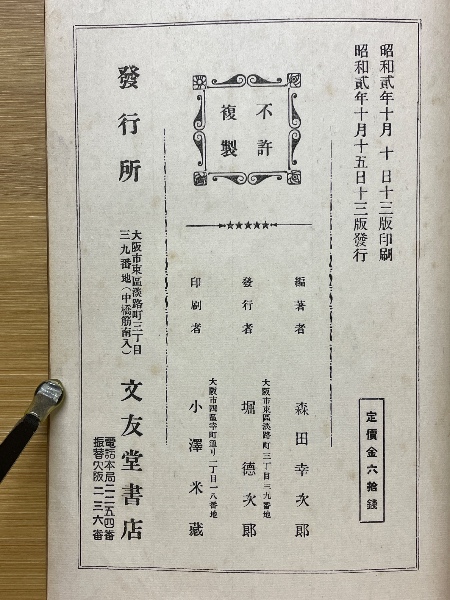 昭和貳年十月 十 日十三版印刷
昭和貳年十月十五日十三版發行
定價金六拾錢
不許
複製
編著者 森田幸次郎
大阪市東區淡路町三丁目三九番地
發行者 堀德次郎
大阪市西區幸町通り一丁目一八番地
印刷者 小澤米藏
發行所 大阪市東區淡路町三丁目
三九番地(中橋筋南入) 文友堂書店
電話本局二二五四番
振替大阪二三六番